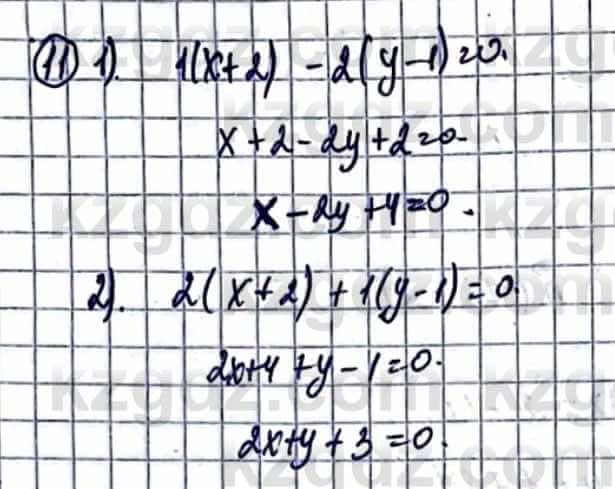 11 1). 1(x+2) - 2(y-1)=0.
x+2-2y+2=0.
x-2y+4=0.
2). 2(x+2)+1(y-1)=0.
2x+4+y-1=0.
2x+y+3=0.
kzgdz.com